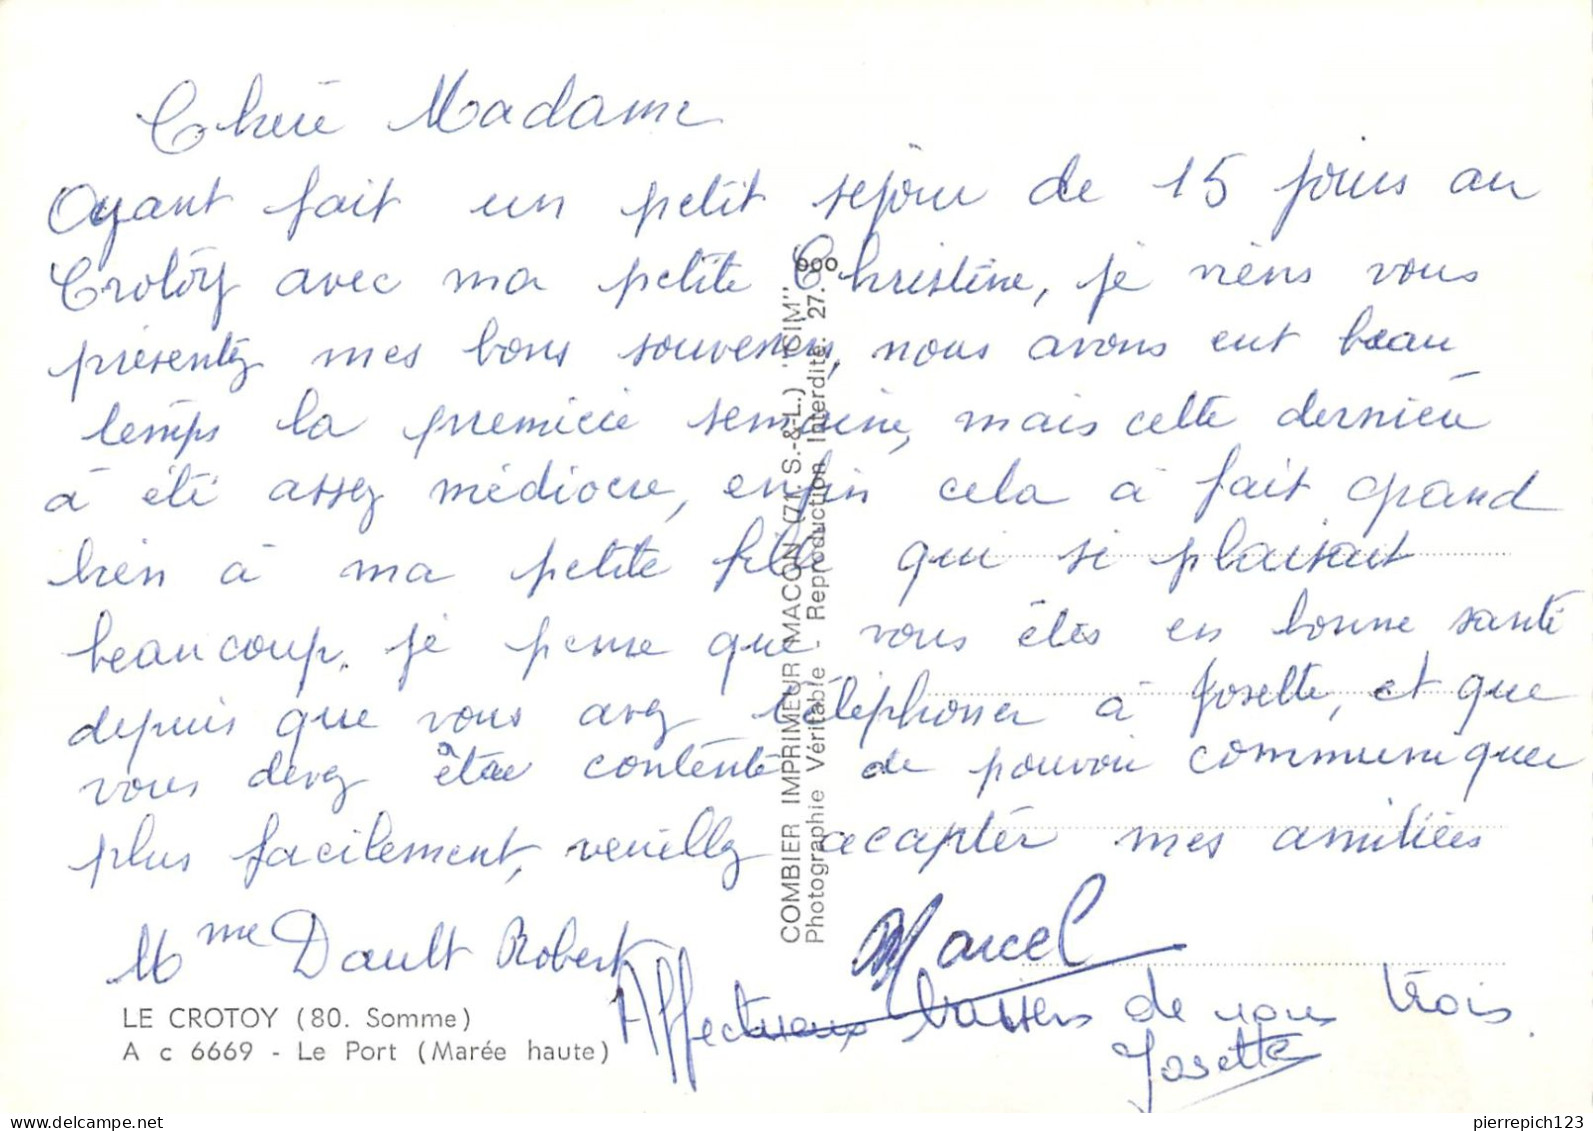 Chère Madame
Ayant fait un petit séjour de 15 jours au
Crotoy avec ma petite Christine, je viens vous
présentez mes bons souvenirs, nous avons eut beau
temps la première semaine, mais cette dernière
à été assez médiocre, enfin cela à fait grand
bien à ma petite fille qui si plaisait
beaucoup. je pense que vous étes en bonne santé
depuis que vous avez téléphoner à Josette, et que
vous devez être contente de pouvoir communiquer
plus facilement, veuillez accepter mes amitiées
Mme Dault Robert
Marcel
Affectueux baisers de nous trois.
Josette
LE CROTOY (80. Somme)
A c 6669 - Le Port (Marée haute)
COMBIER IMPRIMEUR MACON (71. S.-&-L.) "CIM"
Photographie Véritable - Reproduction Interdite. 27.
pierrepich123